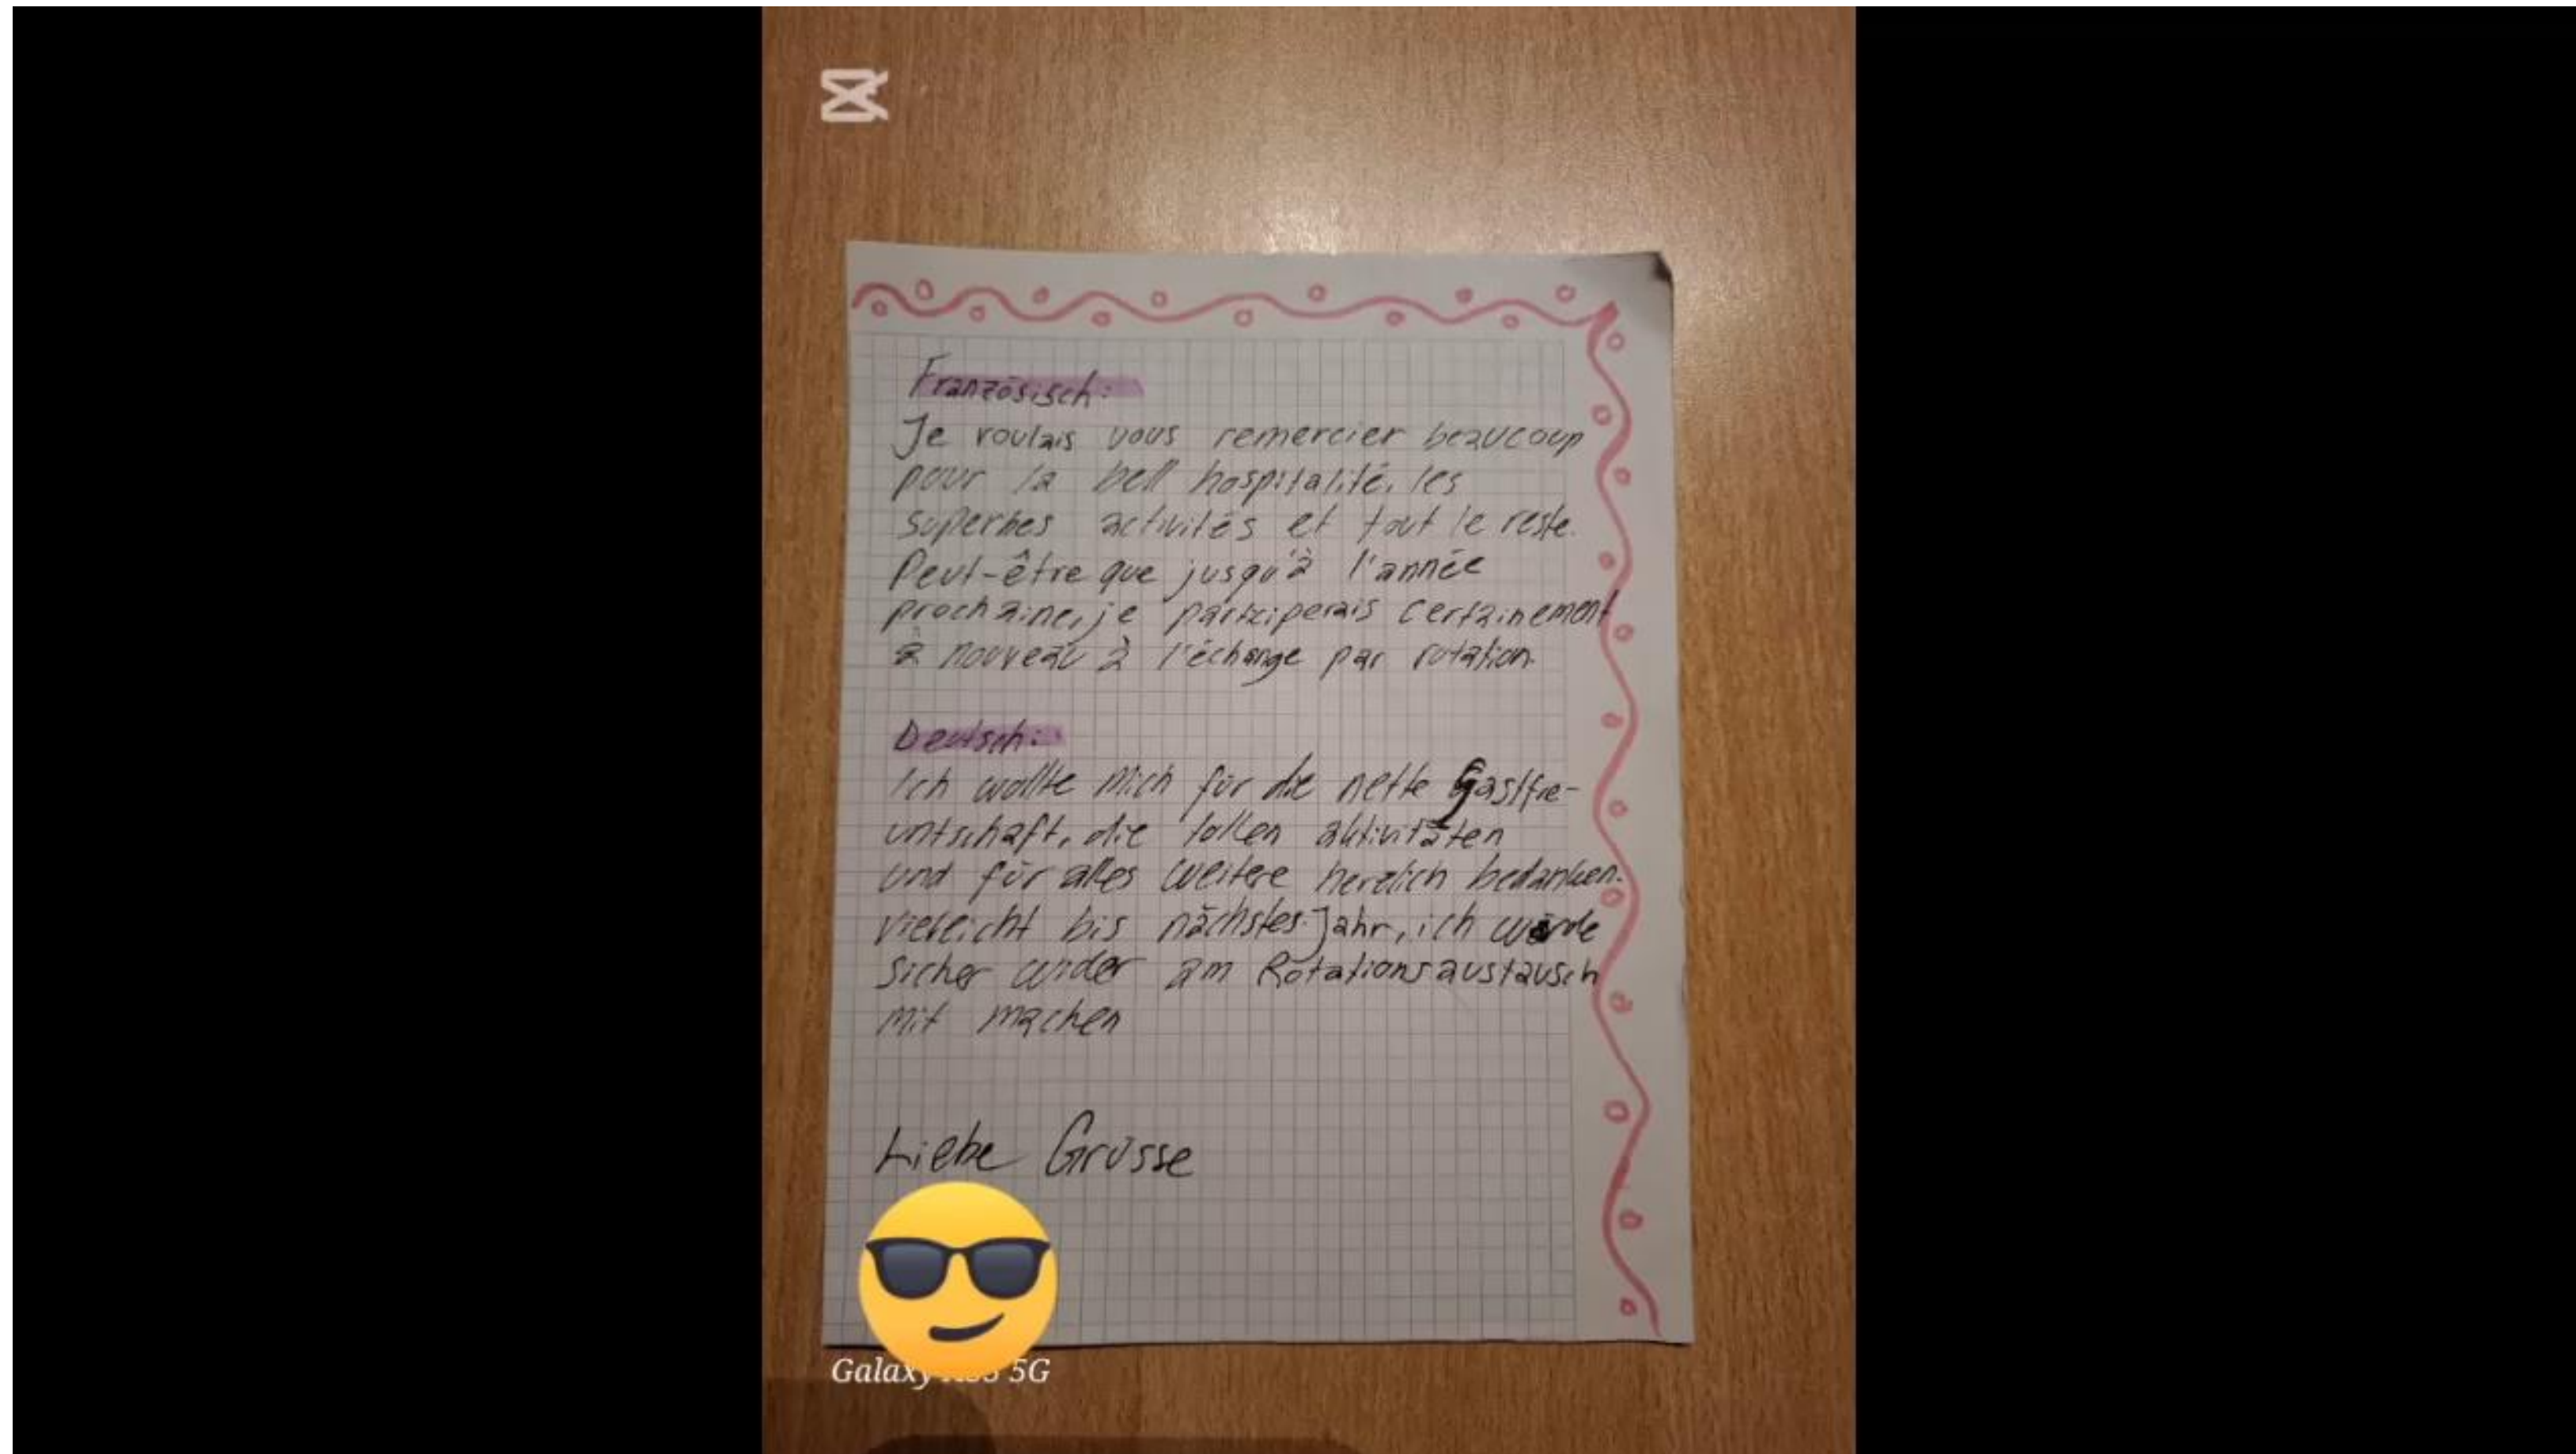 Französisch:
Je voulais vous remercier beaucoup
pour la bell hospitalité, les
superbes activités et tout le reste.
Peut-être que jusqu'à l'année
prochaine, je participerais certainement
à nouveau à l'échange par rotation.
Deutsch:
Ich wollte mich für die nette Gastfre-
untschaft, die tollen aktivitäten
und für alles weitere herzlich bedanken.
vieleicht bis nächstes Jahr, ich werde
sicher wider am Rotationsaustausch
mit machen
Liebe Grüsse
Galaxy 5G